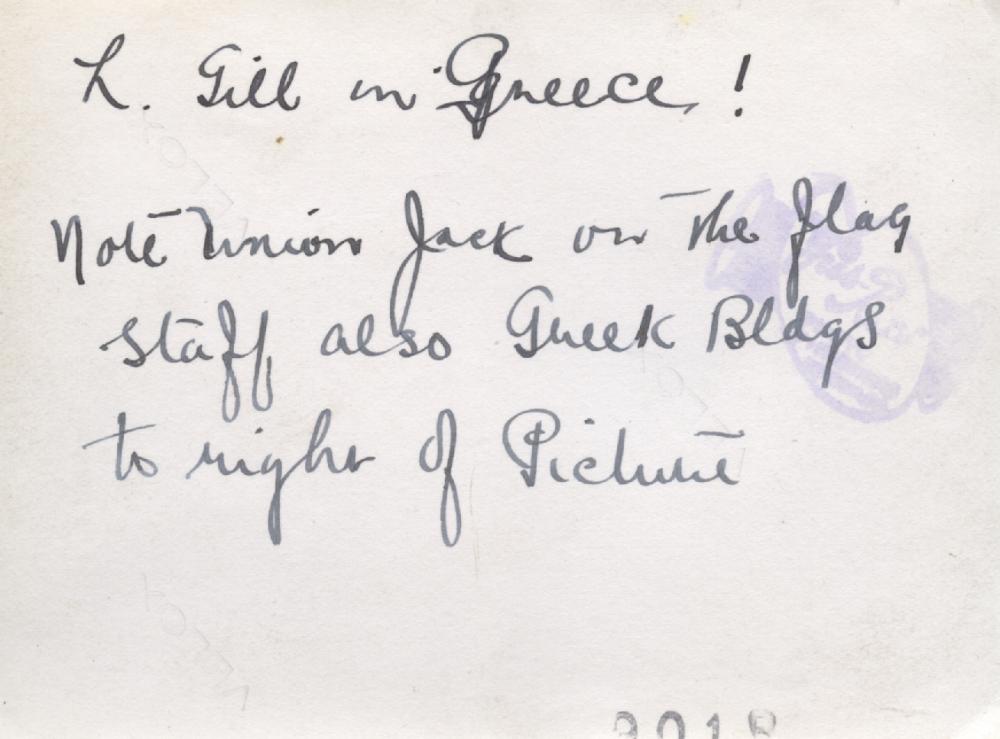 L. Gill in Greece !
Note Union Jack on the flag
staff, also Greek Bldgs
to right of Picture